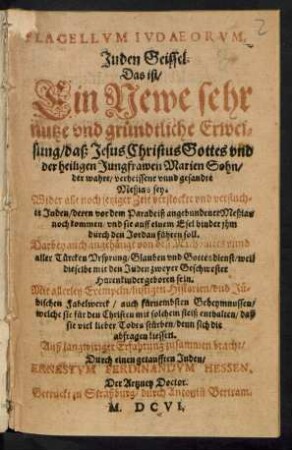 FLAGELLVM IVDAEORVM.
Juden Geissel.
Das ist/
Ein Newe sehr
nutze vnd gründtliche Erwei-
sung/ daß Jesus Christus Gottes vnd
der heiligen Jungfrawen Marien Sohn/
der wahre/ verheissene vnnd gesandte
Messias sey.
Wider alle noch jetziger Zeit verstockte vnd verfluch-
te Juden/ deren vor dem Paradeiß angebundener Messias
noch kommen vnd sie auff einem Esel hinder jhm
durch den Jordan führen soll.
Darbey auch angehängt von deß vnnd
aller Türcken Vrsprung/ Glauben vnd Gottesdienst/ weil
dieselbe mit den Juden zweyer Geschwester
Hurenkinder geboren sein.
Mit allerley Exempeln/ lustigen Historien/ vnd Jü-
dischen Fabelwerck/ auch fürnembsten Geheymnussen/
welche sie für den Christen mit solchem fleiß enthalten/ daß
sie viel lieber Todes stürben/ denn sich die
abfragen liessen.
Auß langwiriger Erfahrung zusammen bracht/
Durch einen getaufften Juden/
ERNESTVM FERDINANDVM HESSEN,
Der Artzney Doctor.
Getruckt zu Straßburg/ durch Antonium Bertram.
M. DCVI.
2